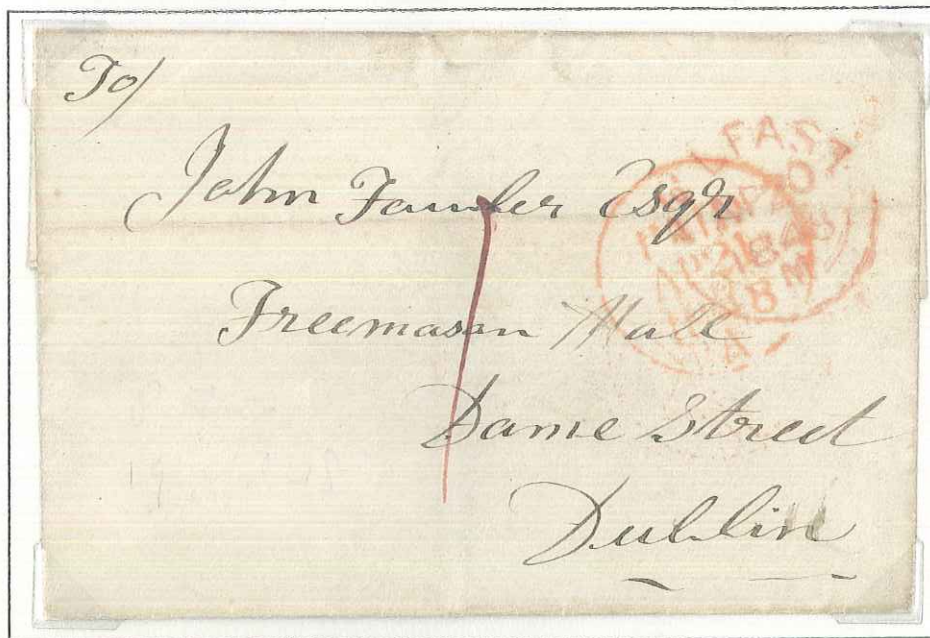 To/
John Fowler Esqr
Freemason Hall
Dame Street
Dublin
1